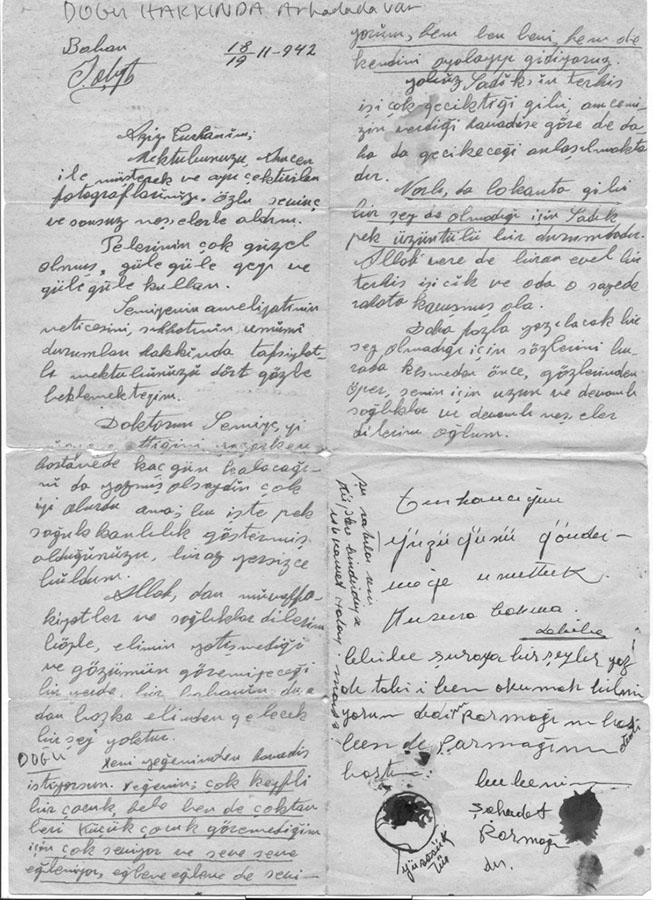 DOĞU HAKKINDA Arkadada var
Baban
18/19 11-942
Aziz Turhanım,
Mektubunuzu,
ile müşterek ve ayrı çektirilen
fotoğraflarınızı, özlü sevinç
ve sonsuz neşelerle aldım.
Pelerinin çok güzel
olmuş, güle güle gey ve
güle güle kullan.
Semiyenin ameliyatının
neticesini, sıhhatinin umumî
durumları hakkında tafsilat-
lı mektubunuzu dört gözle
beklemekteyim.
Doktorun Semiye, yi
ettiğini yazarken
hastanede kaç gün kalacağı-
nı da yazmış olsaydın çok
iyi olurdu ama; bu işte pek
soğukkanlılık göstermiş
olduğunuzu, biraz yersizce
buldum.
Allah, dan muvaffa-
kiyetler ve sağlıklar dilerim
böyle, elimin yetişmediği
ve gözümün göremiyeceği
bir yerde, bir babanın dua-
dan başka elinden gelecek
bir şey yoktur.
DOĞU
Yeni yeğeninden havadis
istiyorsun. Yeğenin; çok keyfli
bir çocuk, hele ben de çoktan
beri küçük çocuk göremediğim
için çok seviyor ve seve seve
eğleniyor, eğlene eğlene de sevi-
yorum, hem ben beni, hem de
kendini oyalayıp gidiyoruz.
Yalnız Sadık'ın terhis
işi çok geciktiği gibi, amcenı-
zın verdiği havadise göre de da-
ha da gecikeceği anlaşılmakta
dır.
da lokanta gibi
bir şey de olmadığı için Sadık
pek üzüntülü bir durumdadır.
Allah vere de biran evel bu
terhis işi çık ve oda o sayede
rahata kavuşmuş ola.
Daha fazla yazılacak bir
şey olmadığı için sözlerimi bu-
rada kesmeden önce, gözlerinden
öper, senin için uzun ve devamlı
sağlıklar ve devamlı neşeler
dilerim oğlum.
Turhancığım
yüzüğünü gönder-
meğe unuttuk.
Kusura bakma.
bebibe şuraya bir şeyler yaz
dedim Parmağını bas
ben de Parmağımı
bastım
bu benim
Şahadet
Parmağı
dır.
yüzük